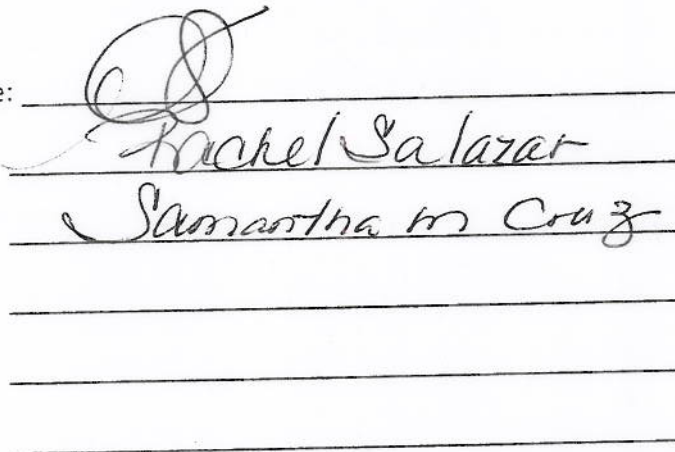 e:
Rachel Salazar
Samantha m Cruz